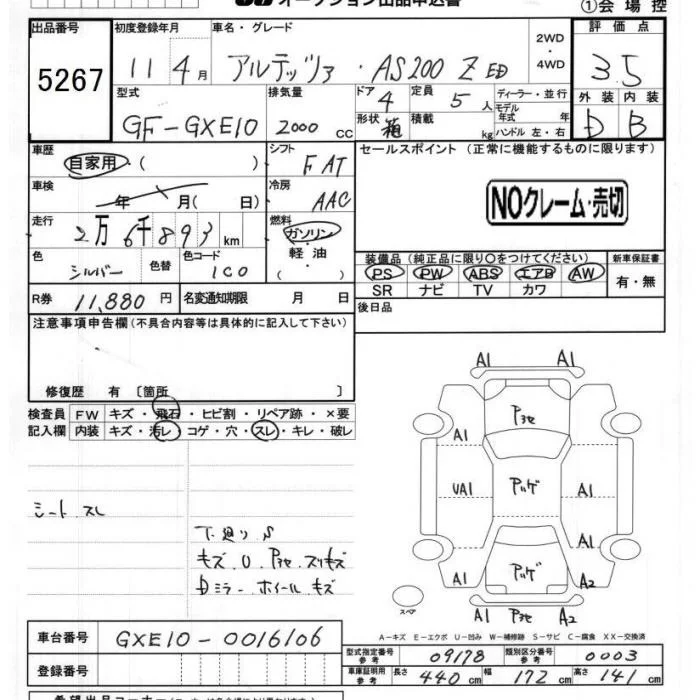 オークション出品申込書
①会場控
出品番号 5267
初度登録年月 11 4月
車名・グレード アルテッツァ・AS200 Z ED
2WD・4WD
評価点 3.5
型式 GF-GXE10
排気量 2000 cc
ドア 4
形状 箱
定員 5人
積載 kg
ディーラー・並行
モデル年式 年
ハンドル 左・右
外装 D
内装 B
車歴 自家用・( )
シフト FAT
セールスポイント (正常に機能するものに限ります)
NOクレーム・売切
車検 年 月( 日)
冷房 AAC
走行 2万6千893km
燃料 ガソリン・軽油・( )
色 シルバー 色替
色コード 1C0
装備品 (純正品に限り○をつけてください)
PS PW ABS エアB AW
SR ナビ TV カワ
新車保証書 有・無
R券 11,880円
名変通知期限 月 日
後日品
注意事項申告欄 (不具合内容等は具体的に記入して下さい)
修復歴 有 〔箇所 〕
検査員記入欄
FW キズ・飛石・ヒビ割・リペア跡・×要
内装 キズ・汚レ・コゲ・穴・スレ・キレ・破レ
シート スレ
下廻り S
キズ.U.Pヨセ スリキズ
Dミラー ホイール キズ
A1 A1
Pヨセ
A1
UA1 Pハゲ A1
A1
A1 Pハゲ A2
A1 Pヨセ A2
スペア
A-キズ E-エクボ U-凹み W-補修跡 S-サビ C-腐食 XX-交換済
車台番号 GXE10-0016106
型式指定番号 参考 09178
類別区分番号 参考 0003
登録番号
車庫証明用 参考 長さ 440cm 幅 172cm 高さ 141cm